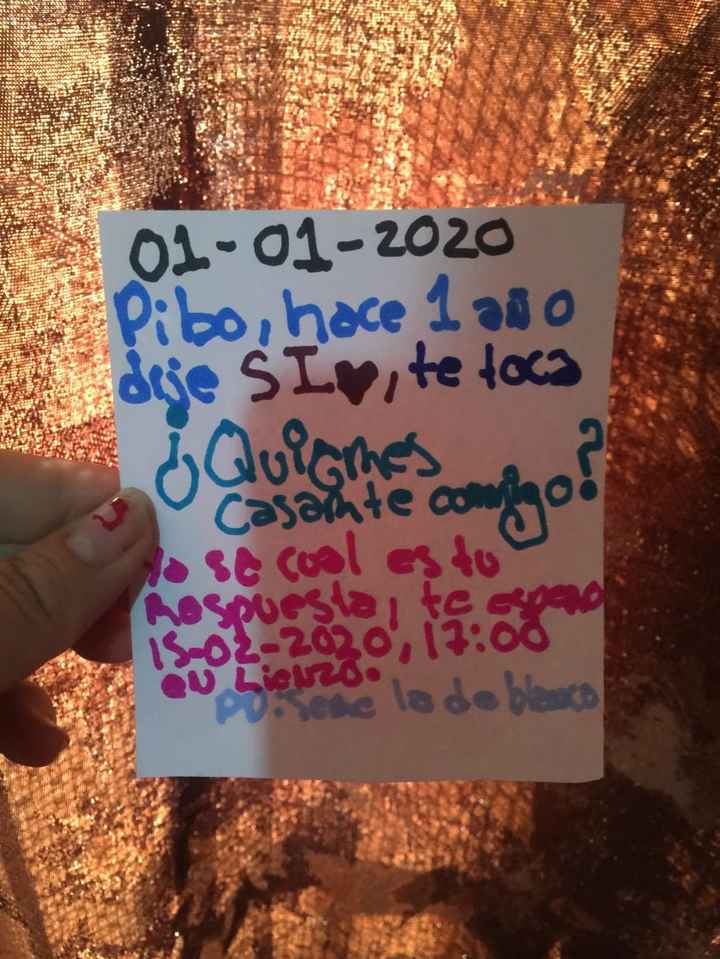 01-01-2020
Pibo, hace 1 año
dije SI♥, te toca
¿Quieres
casarte conmigo?
Yo se cual es tu
Respuesta, te espero
15-02-2020, 17:00
en Lienzo.
PD: Sere la de blanco